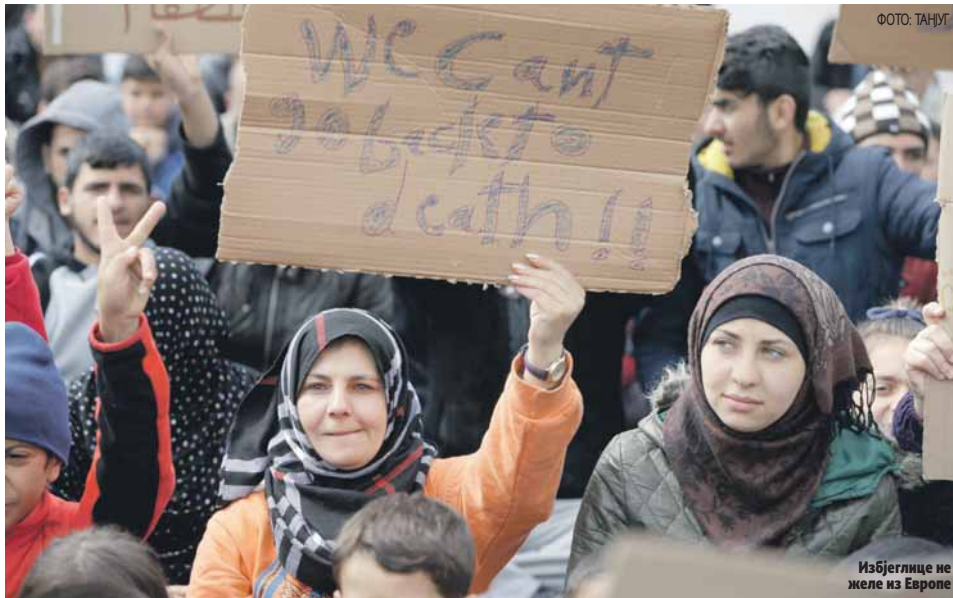 ФОТО: ТАНЈУГ
We Cant
go back to
death!!
Избјеглице не
желе из Европе